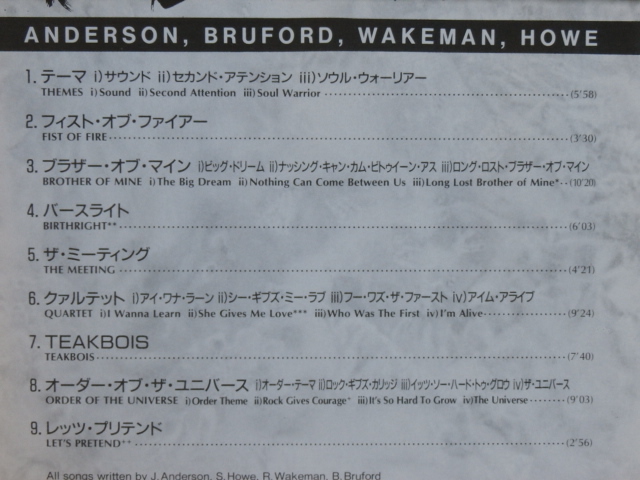 ANDERSON, BRUFORD, WAKEMAN, HOWE
1. テーマ i)サウンド ii)セカンド・アテンション iii)ソウル・ウォーリアー
THEMES i)Sound ii)Second Attention iii)Soul Warrior (5'58)
2. フィスト・オブ・ファイアー
FIST OF FIRE (3'30)
3. ブラザー・オブ・マイン i)ビッグ・ドリーム ii)ナッシング・キャン・カム・ビトゥイーン・アス iii)ロング・ロスト・ブラザー・オブ・マイン
BROTHER OF MINE i)The Big Dream ii)Nothing Can Come Between Us iii)Long Lost Brother of Mine* (10'20)
4. バースライト
BIRTHRIGHT** (6'03)
5. ザ・ミーティング
THE MEETING (4'21)
6. クァルテット i)アイ・ワナ・ラーン ii)シー・ギブズ・ミー・ラブ iii)フー・ワズ・ザ・ファースト iv)アイム・アライブ
QUARTET i)I Wanna Learn ii)She Gives Me Love*** iii)Who Was The First iv)I'm Alive (9'24)
7. TEAKBOIS
TEAKBOIS (7'40)
8. オーダー・オブ・ザ・ユニバース i)オーダー・テーマ ii)ロック・ギブズ・カリッジ iii)イッツ・ソー・ハード・トゥ・グロウ iv)ザ・ユニバース
ORDER OF THE UNIVERSE i)Order Theme ii)Rock Gives Courage* iii)It's So Hard To Grow iv)The Universe (9'03)
9. レッツ・プリテンド
LET'S PRETEND** (2'56)
All songs written by J. Anderson, S. Howe, R. Wakeman, B. Bruford